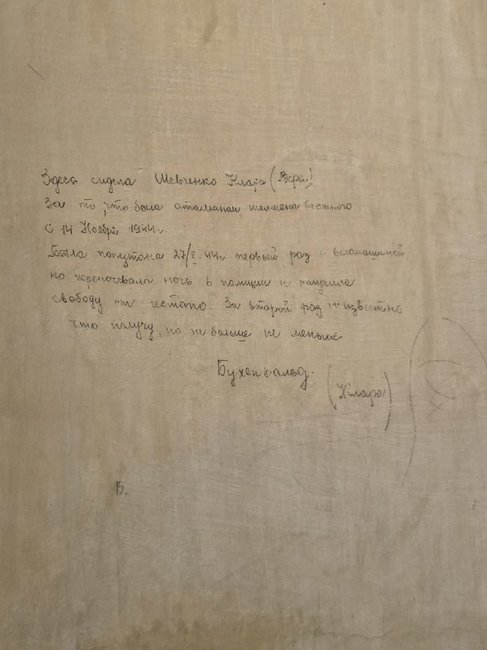 Здесь сидела Шевченко Клара (Вера)
За то, что была атаманом
с 14 Ноября 1944г.
Была 27/I.44г первый раз с
но переночевала ночь в полиции и получила
свободу от гестапо. За второй раз неизвестно
что получу, но не больше не меньше
Бухенвальд.
(Клара)
В.